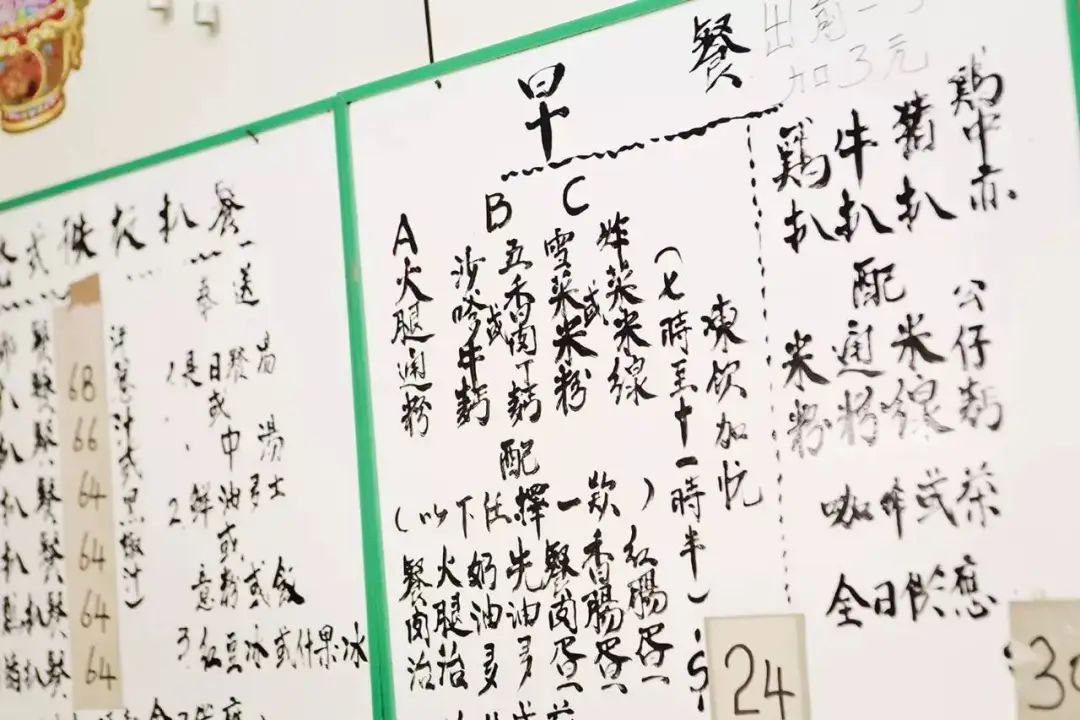 早餐
加3元
A 火腿通粉
B 沙嗲牛麪
或
五香肉丁麪
C 雪菜米粉
或
炸菜米線
(七時至十一時半)
凍飲加
配
(以下任擇一款)
餐肉治
火腿治
奶油多
餐肉蛋
香腸蛋
紅腸蛋
24
鷄扒
牛扒
豬扒
鷄中亦
配
米粉
通粉
米線
公仔麪
咖啡或茶
全日供應
扒餐
奉送
1.
日
或
湯
中
湯
2.鮮油多士
或
意粉或飯
3.紅豆冰或什果冰
汁或黑椒汁)
68
66
64
64
64
64